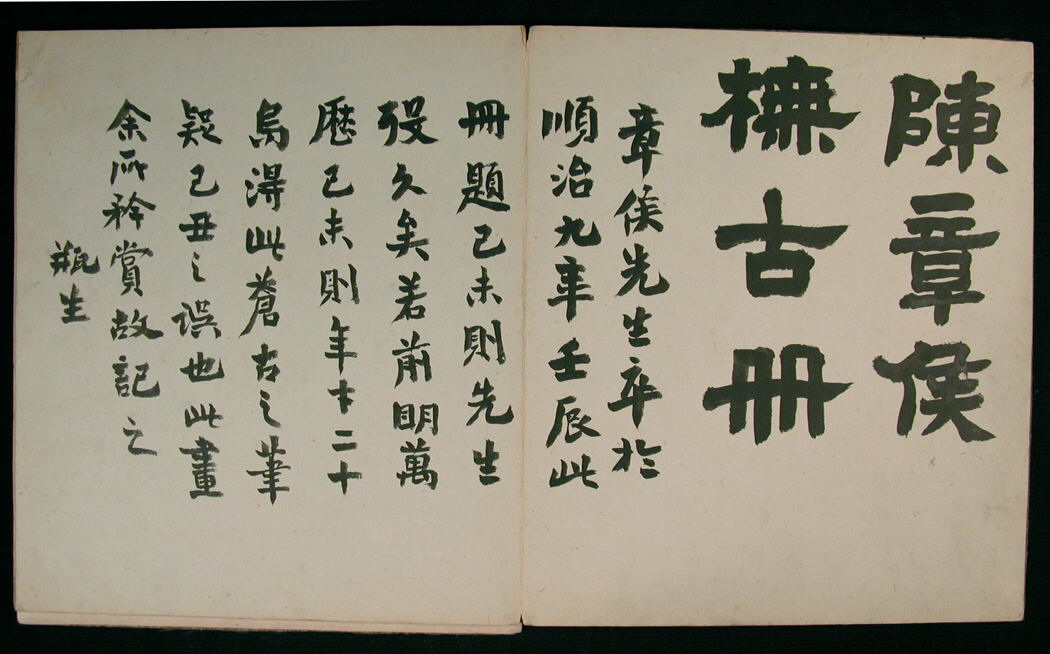 陳章侯
橅古册
章侯先生卒於
順治九年壬辰此
冊題己未則先生
歿久矣若前明萬
歷己未則年才二十
烏得此蒼古之筆
疑己丑之誤也此畫
余所矜賞故記之
瓶生